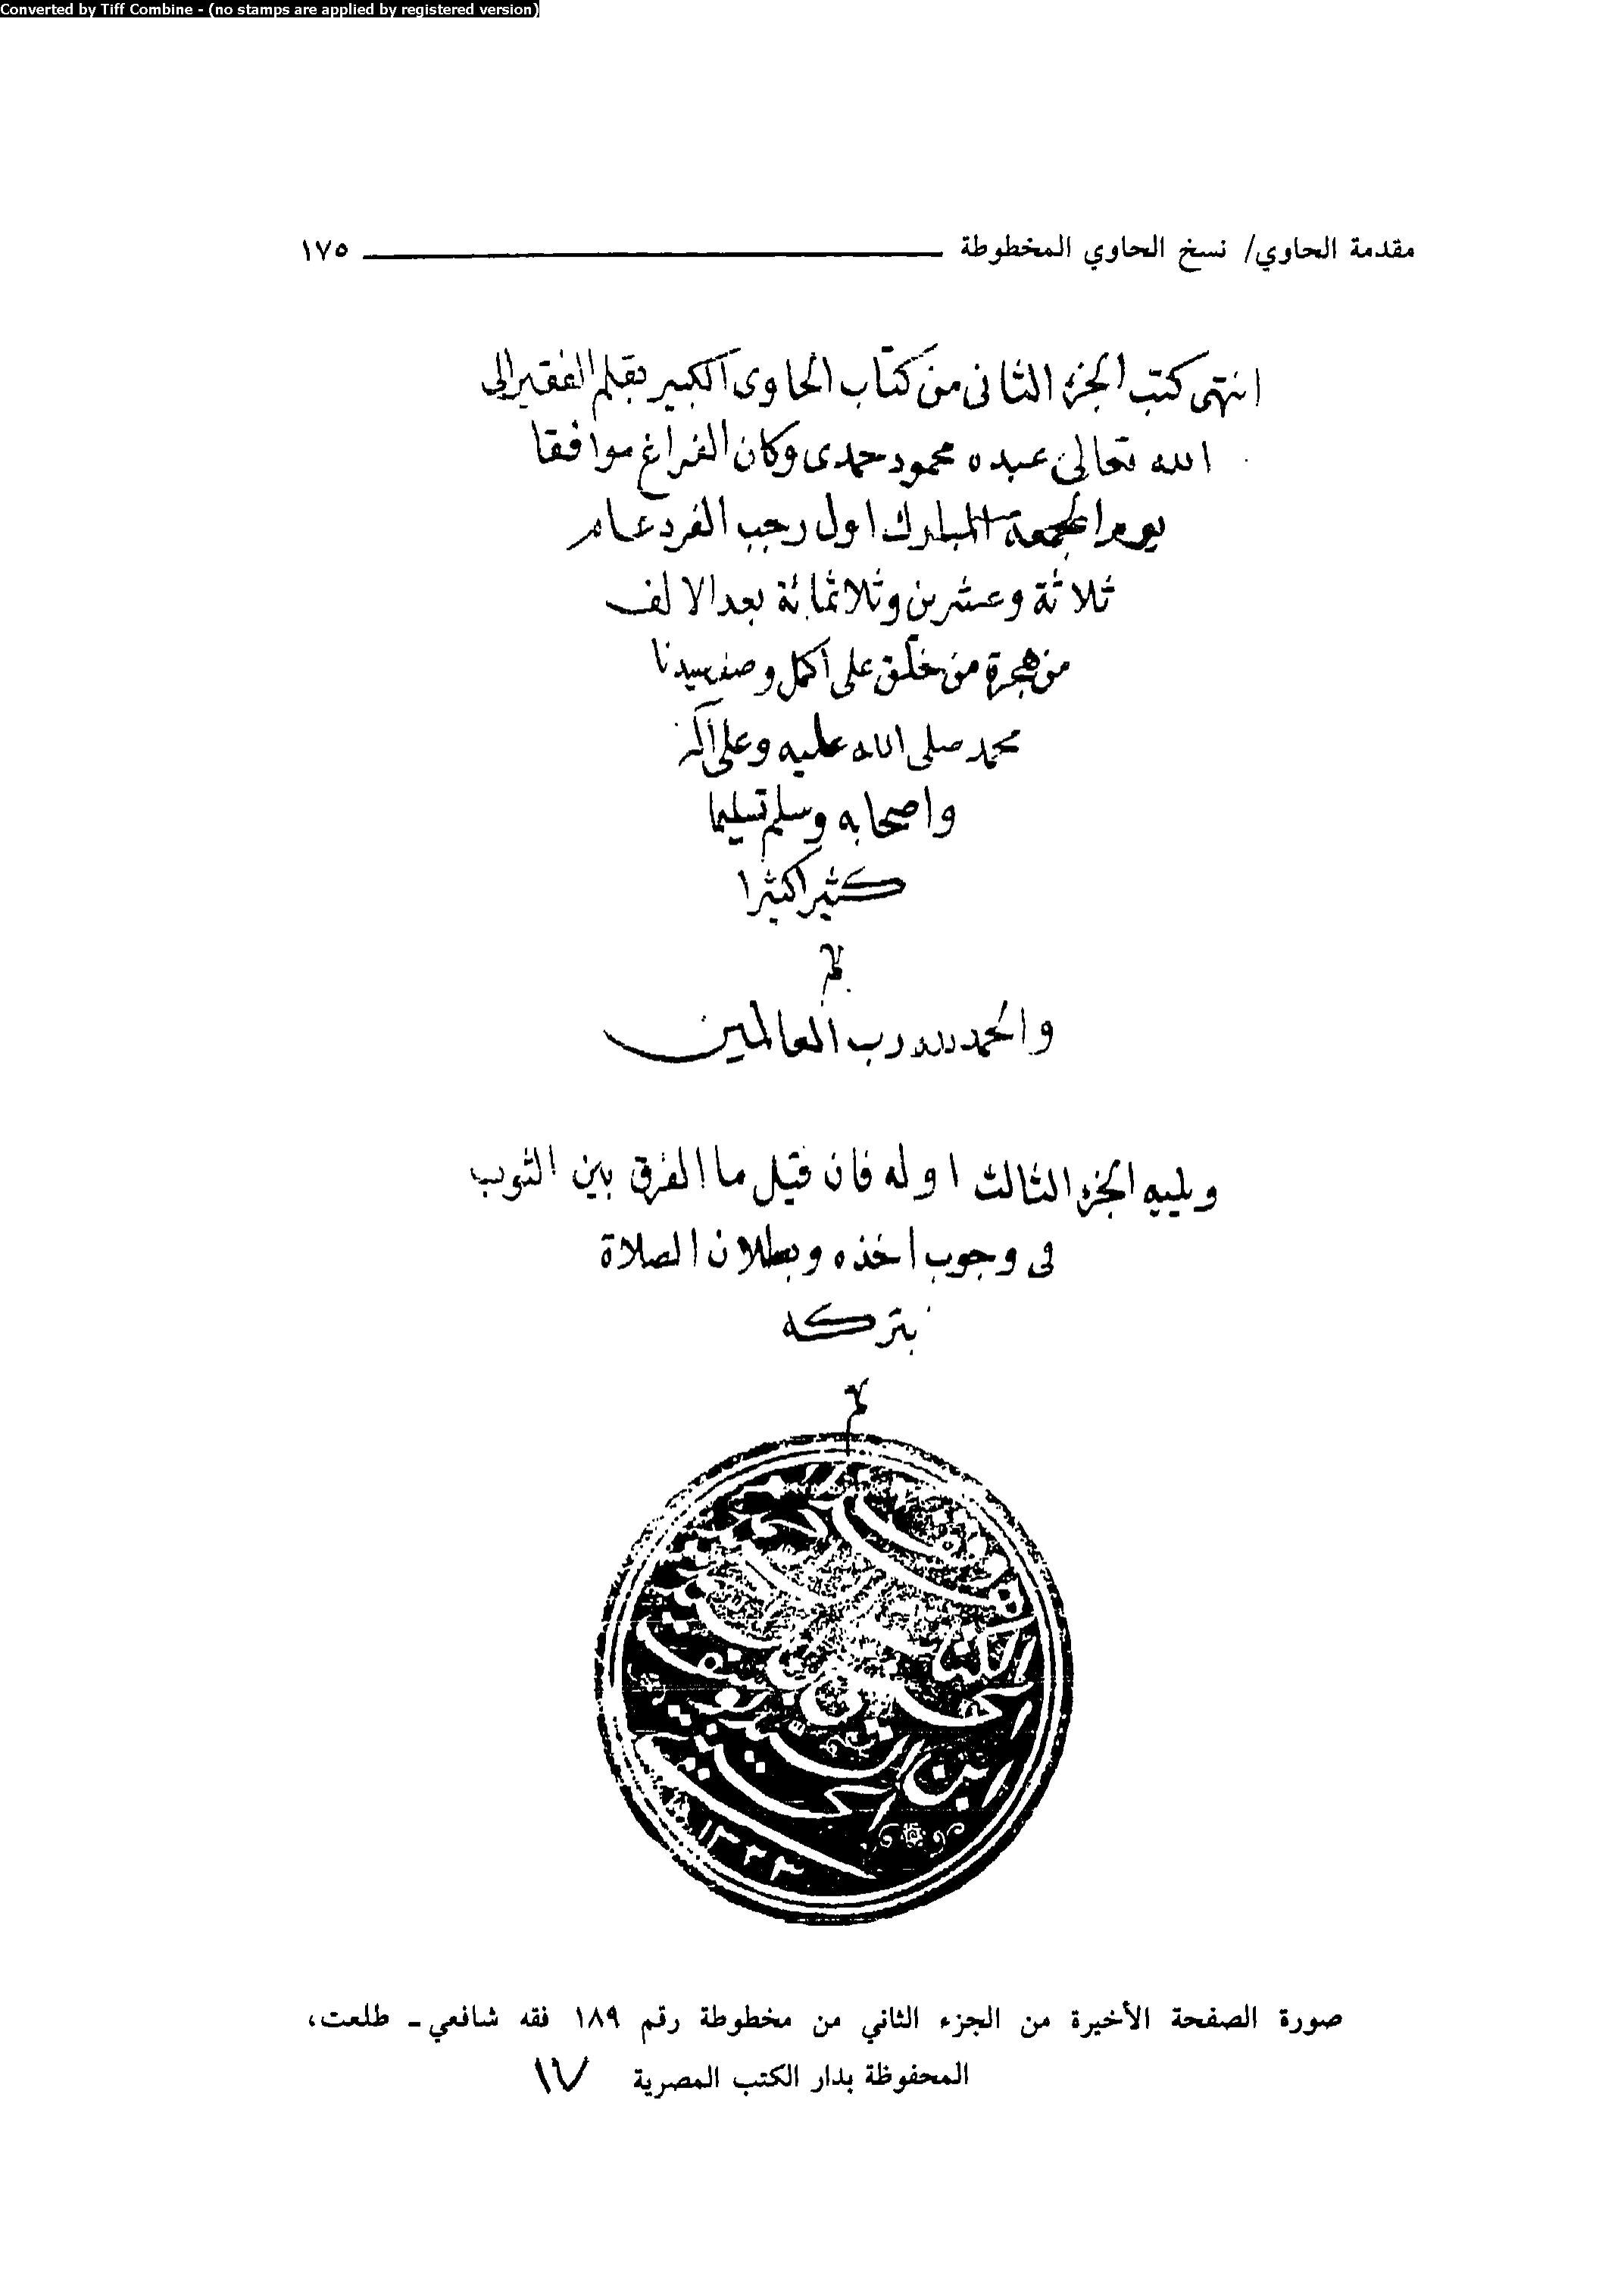 Converted by Tiff Combine - (no stamps are applied by registered version)
مقدمة الحاوي/ نسخ الحاوي المخطوطة ١٧٥
انتهى كتب الجزء الثانى من كتاب الحاوى الكبير بقلم الفقير الى
الله تعالى عبده محمود حمدى وكان الفراغ موافقا
يوم الجمعة المبارك اول رجب الفرد عام
ثلاثة وعشرين وثلاثمائة بعد الالف
من هجرة من خلق على اكمل وصف سيدنا
محمد صلى الله عليه وعلى آله
واصحابه وسلم تسليما
كثيرا كثيرا
والحمد لله رب العالمين
ويليه الجزء الثالث اوله فان قيل ما الفرق بين الثوب
فى وجوب اخذه وبطلان الصلاة
بتركه
١٣٢٣
صورة الصفحة الأخيرة من الجزء الثاني من مخطوطة رقم ١٨٩ فقه شافعي - طلعت،
المحفوظة بدار الكتب المصرية ١٧